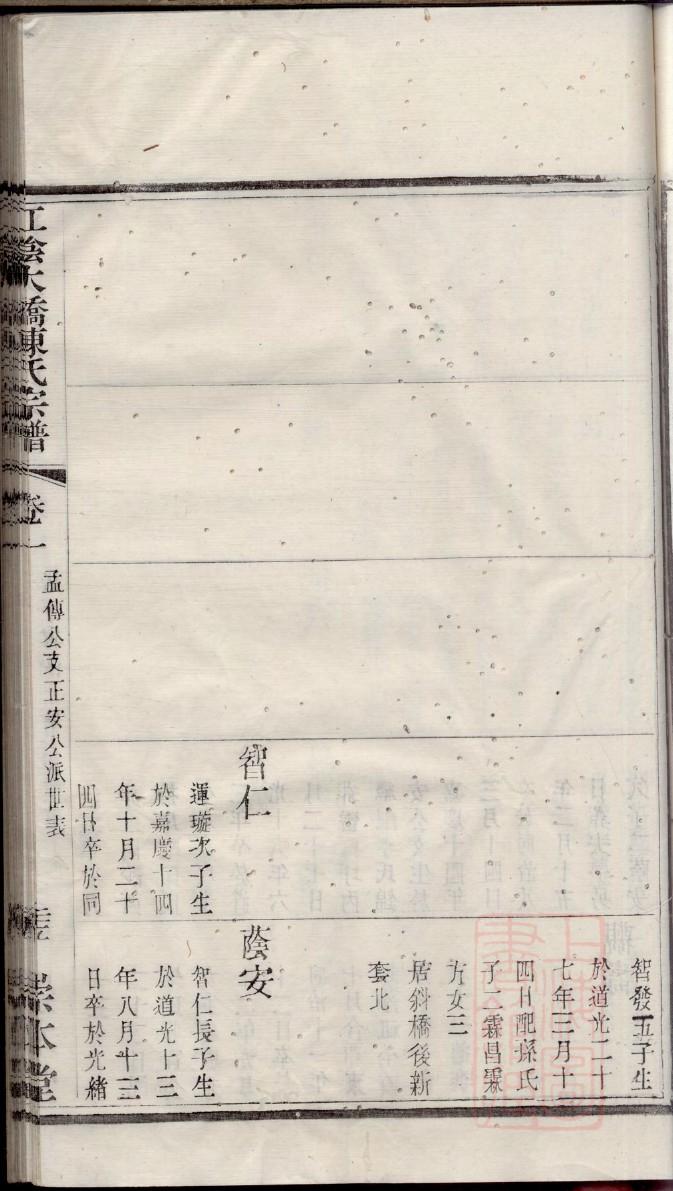 智發五子生
於道光二十
七年三月十
四日配孫氏
子二霖昌霖
方女三
居斜橋後新
套北
智仁
運璇次子生
於嘉慶十四
年十月二十
四日卒於同
蔭安
智仁長子生
於道光十三
年八月十三
日卒於光緒
孟傳公支正安公派世表
江陰大橋陳氏宗譜
卷一
崇本堂